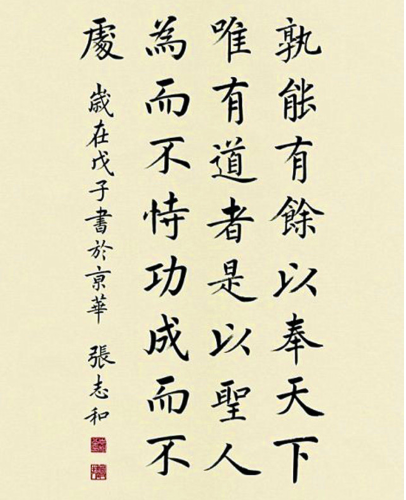 孰能有餘以奉天下
唯有道者是以聖人
為而不恃功成而不
處 歲在戊子書於京華 張志和